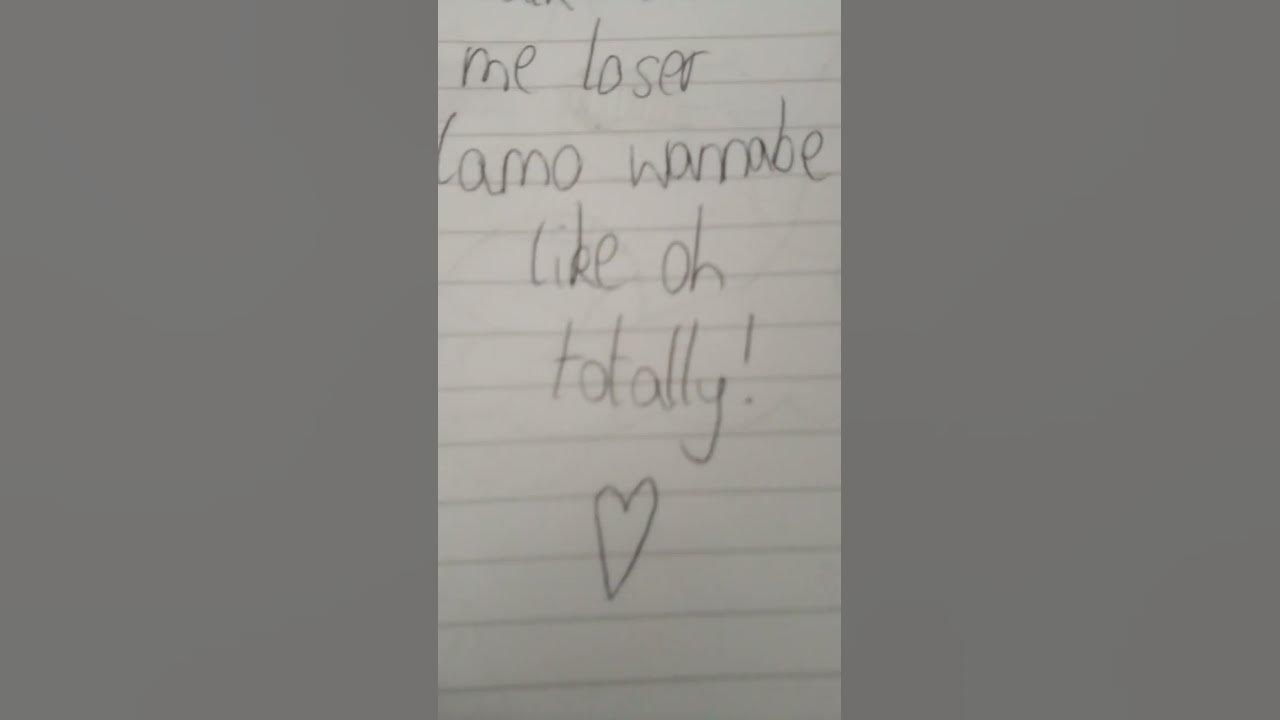 me loser
lamo wannabe
like oh
totally!